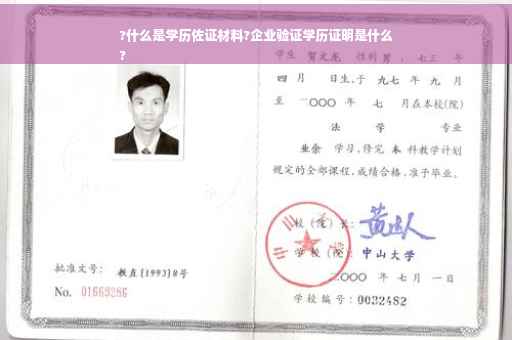 ?什么是学历佐证材料?企业验证学历证明是什么
?
学生 贺文龙 性别 男 ，七三 年
四 月 日生，于 九七 年 九 月
至 二〇〇〇 年 七 月在本校(院)
法 学 专业
业余 学习，修完 本 科教学计划
规定的全部课程，成绩合格，准予毕业。
校（院）长：
学校（院）：中山大学
二〇〇〇 年 七 月 一 日
批准文号： 教直[1993]8号
No. 01663286
学校编号：0032482